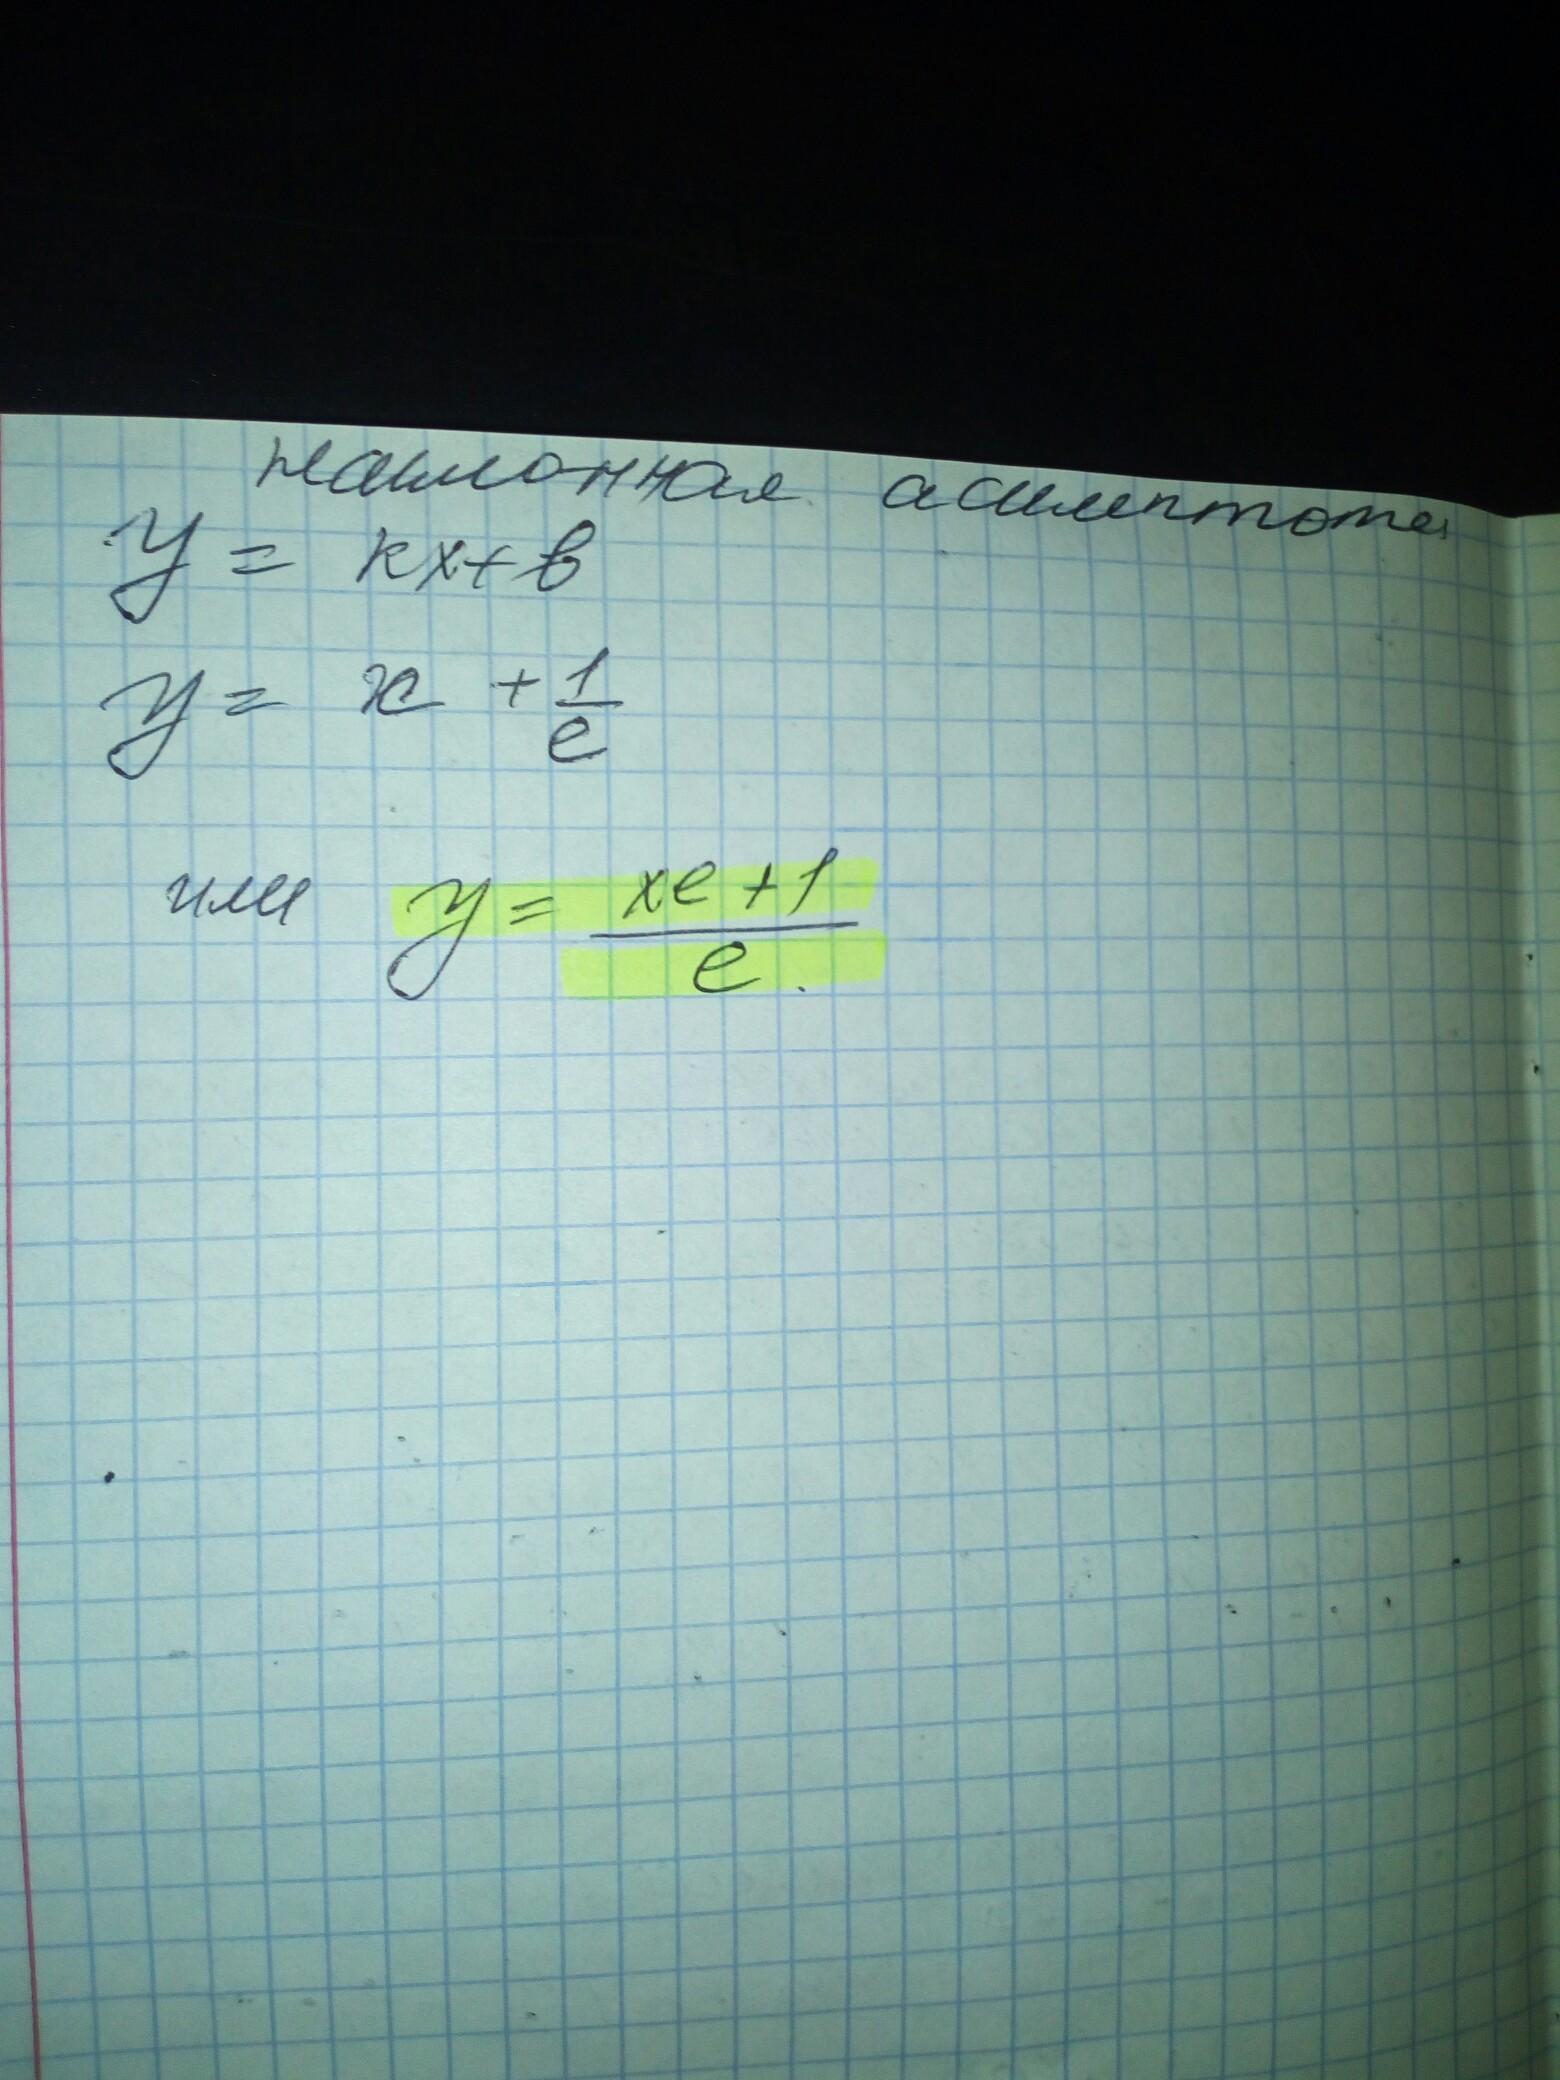 наклонная асимптота
y = kx + b
y = x + 1/e
или y = xe + 1/e.